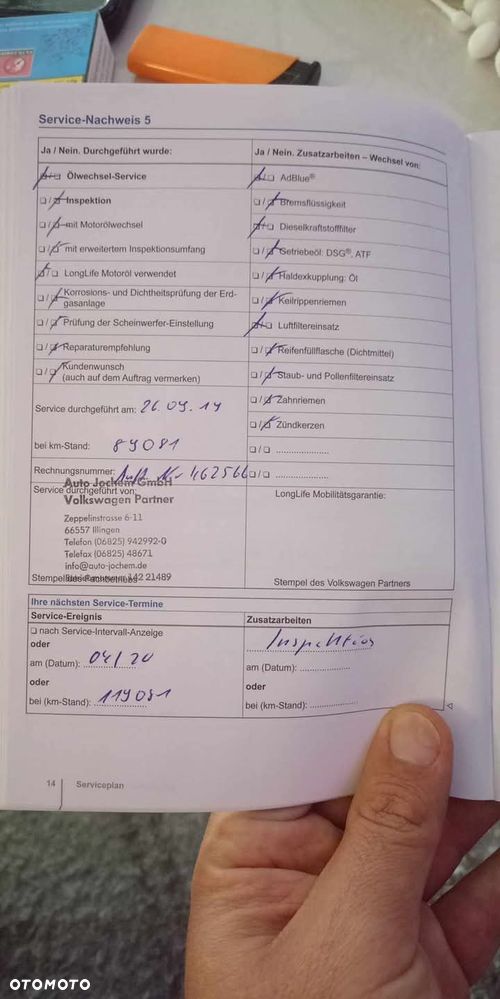 Service-Nachweis 5
Ja / Nein. Durchgeführt wurde:
Ölwechsel-Service
Inspektion
mit Motorölwechsel
mit erweitertem Inspektionsumfang
LongLife Motoröl verwendet
Korrosions- und Dichtheitsprüfung der Erd-
gasanlage
Prüfung der Scheinwerfer-Einstellung
Reparaturempfehlung
Kundenwunsch
(auch auf dem Auftrag vermerken)
Service durchgeführt am: 26.09.19
bei km-Stand: 89081
Rechnungsnummer: Auft. Nr 462566
Service durchgeführt von:
Auto Jochem GmbH
Volkswagen Partner
Zeppelinstrasse 6-11
66557 Illingen
Telefon (06825) 942992-0
Telefax (06825) 48671
info@auto-jochem.de
142 21489
Ja / Nein. Zusatzarbeiten – Wechsel von:
AdBlue®
Bremsflüssigkeit
Dieselkraftstofffilter
Getriebeöl: DSG®, ATF
Haldexkupplung: Öl
Keilrippenriemen
Luftfiltereinsatz
Reifenfüllflasche (Dichtmittel)
Staub- und Pollenfiltereinsatz
Zahnriemen
Zündkerzen
LongLife Mobilitätsgarantie:
Stempel des Volkswagen Partners
Ihre nächsten Service-Termine
Service-Ereignis
nach Service-Intervall-Anzeige
oder
am (Datum): 04/20
oder
bei (km-Stand): 119081
Zusatzarbeiten
Inspektion
am (Datum):
oder
bei (km-Stand):
14 Serviceplan
OTOMOTO